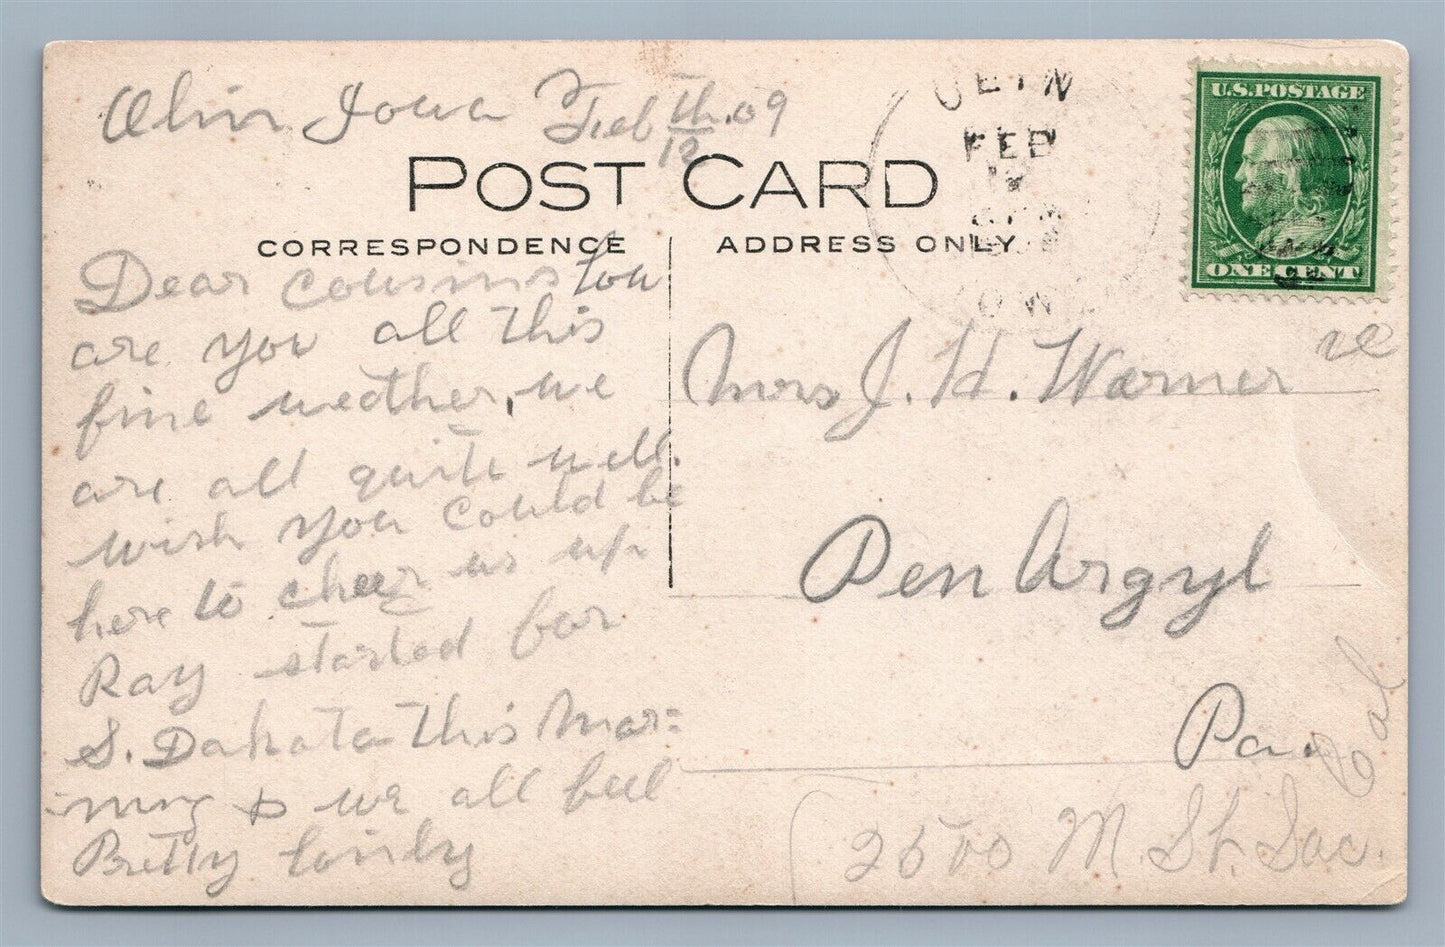 Olin Iowa Feb 12th. 09
POST CARD
CORRESPONDENCE
ADDRESS ONLY
FEB
U.S. POSTAGE
ONE CENT
Dear cousins how
are you all this
fine weather, we
are all quite well.
wish you could be
here to cheer us up
Ray started for
S. Dakota this mor=
ning & we all feel
Pretty lonely
Mrs J. H. Warner
Pen Argyl
Pa.
2500 M. St. Sac.
Cal